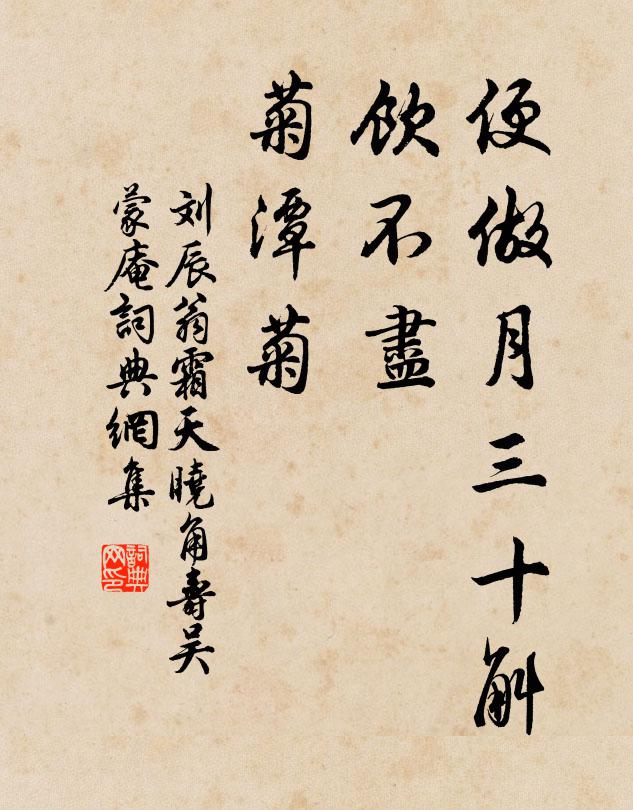 便做月三十斛
飲不盡
菊潭菊
刘辰翁霜天曉角壽吴
蒙庵詞典網集
詞典
网印